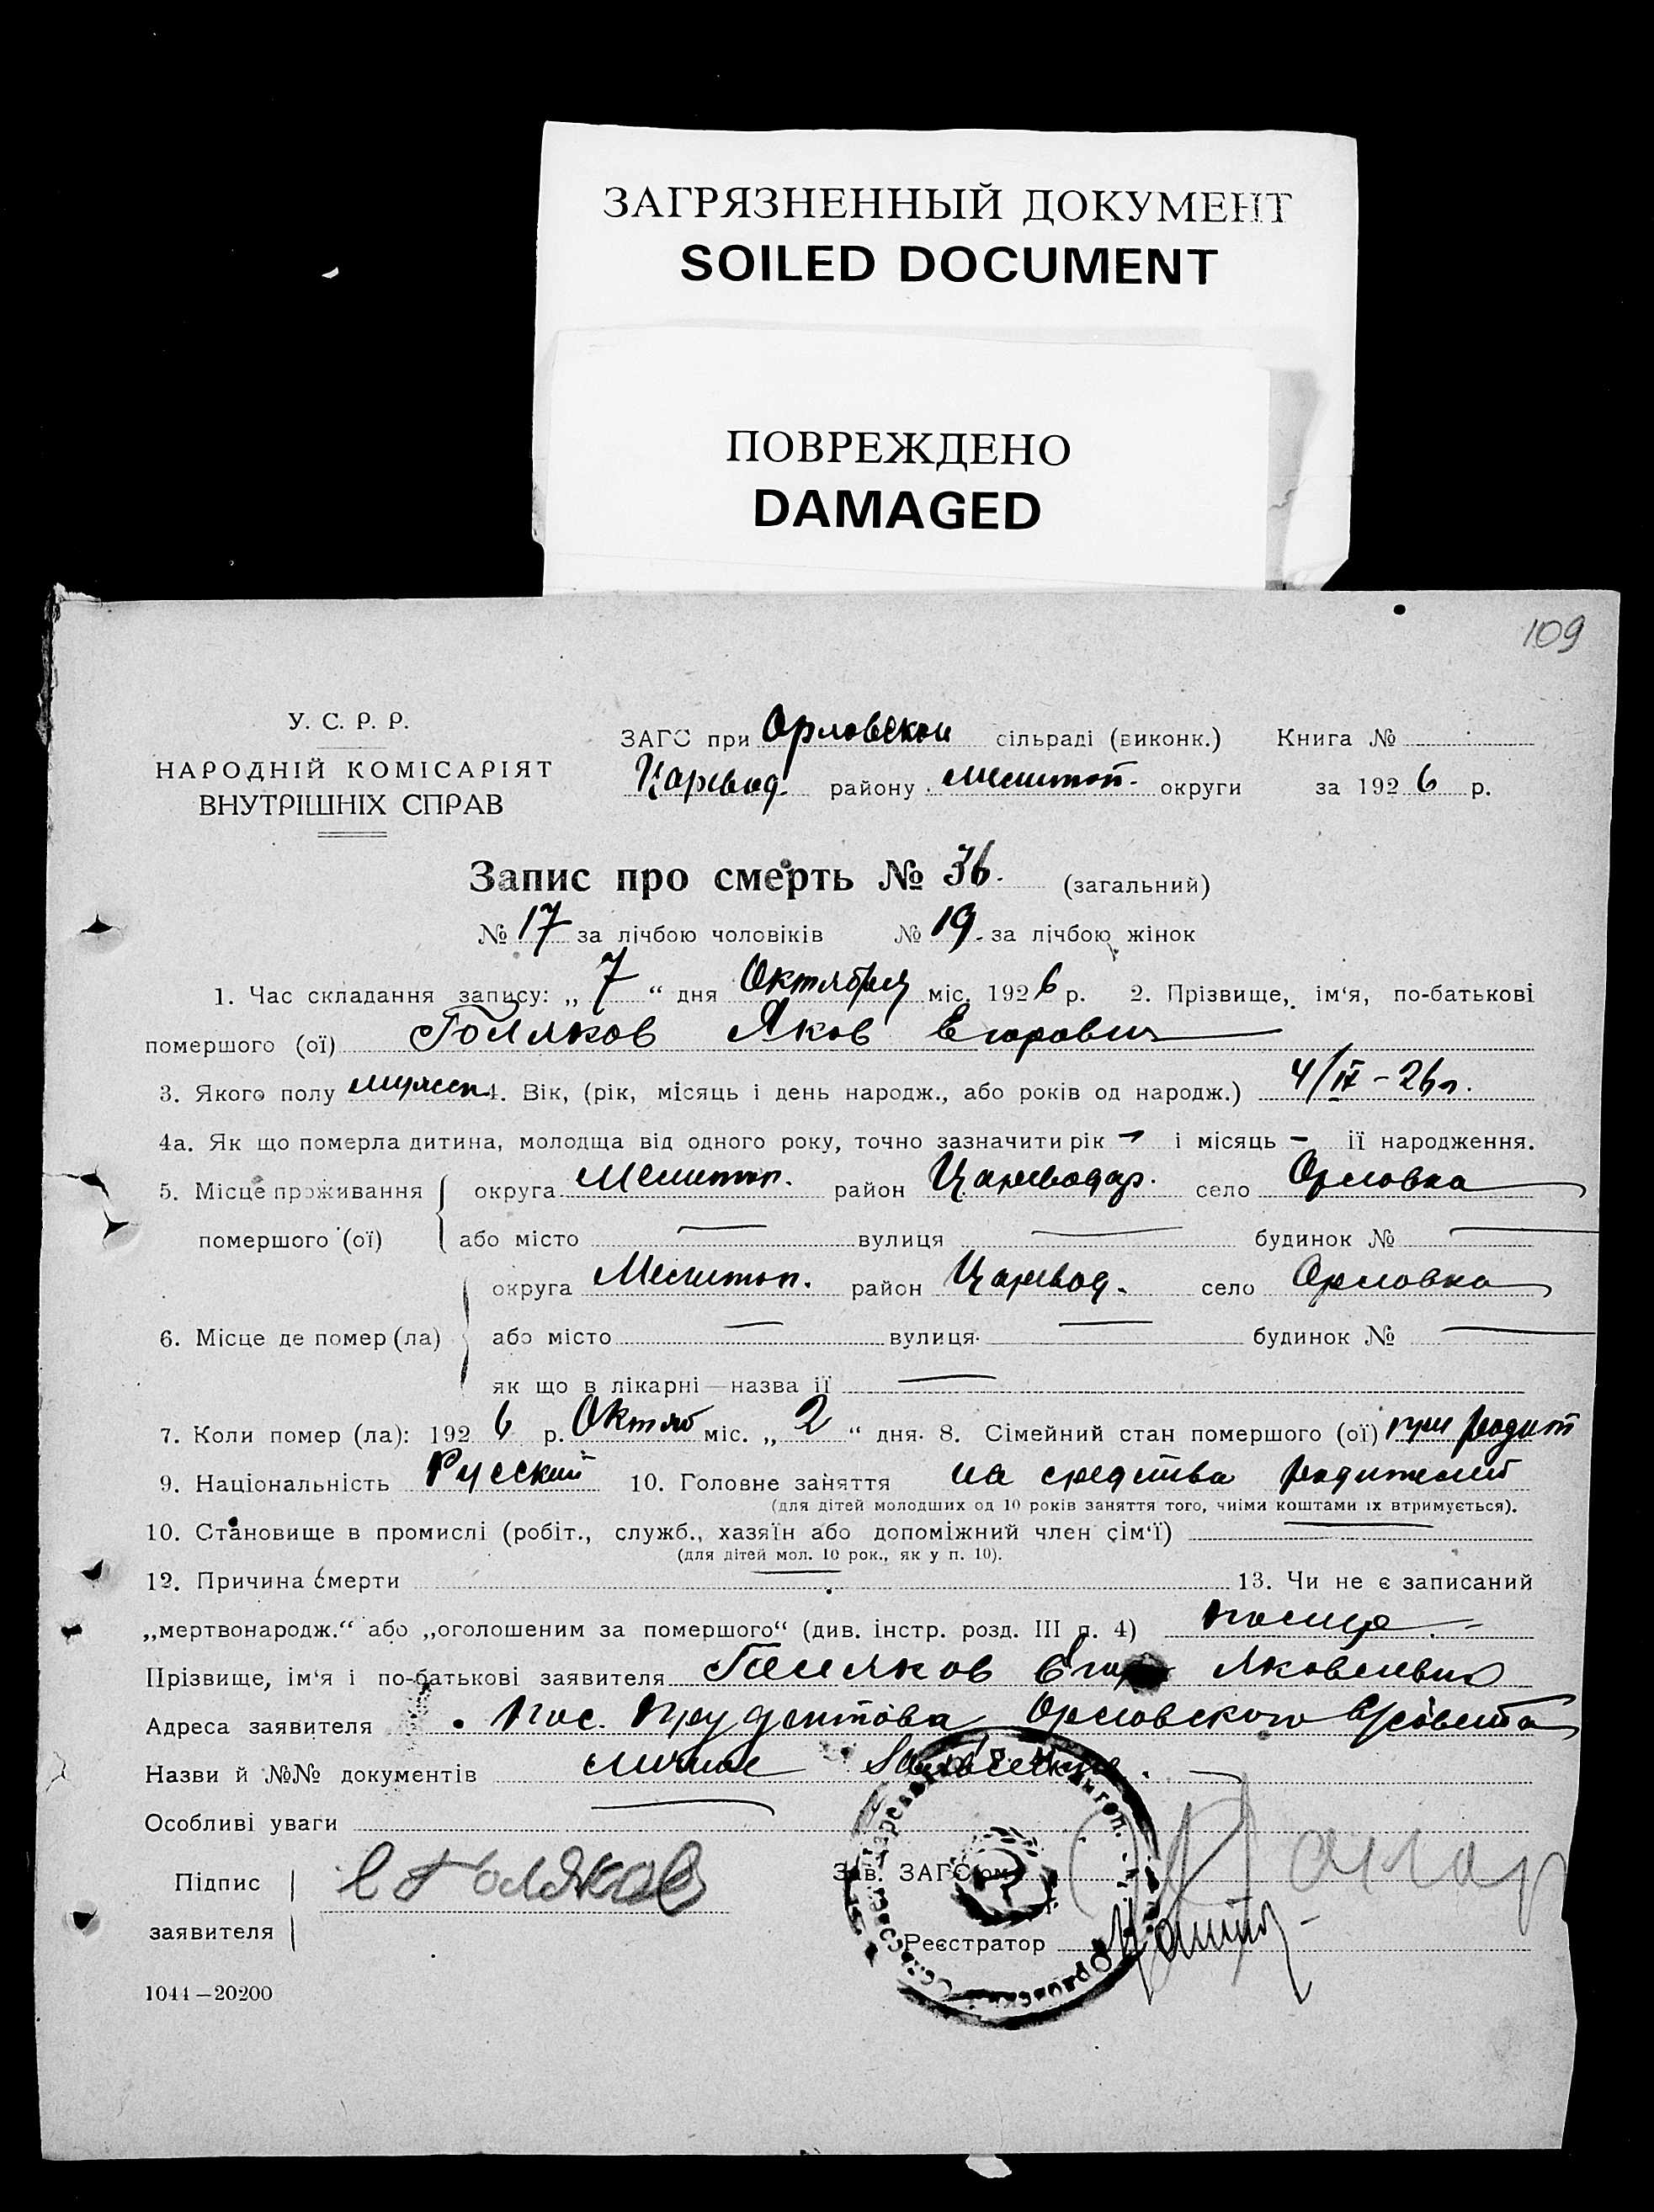 ЗАГРЯЗНЕННЫЙ ДОКУМЕНТ
SOILED DOCUMENT
ПОВРЕЖДЕНО
DAMAGED
109
У. С. Р. Р.
НАРОДНІЙ КОМІСАРІЯТ
ВНУТРІШНІХ СПРАВ
ЗАГС при Орловской сільраді (виконк.) Книга №
Царевод. району Мелитоп. округи за 1926 р.
Запис про смерть № 36. (загальний)
№ 17 за лічбою чоловіків № 19. за лічбою жінок
1. Час складання запису: „ 7 “ дня Октября міс. 1926 р. 2. Прізвище, ім‘я, по-батькові
помершого (ої) Яков Егорович
3. Якого полу 4. Вік, (рік, місяць і день народж., або років од народж.) 4/IX - 26 г.
4а. Як що померла дитина, молодща від одного року, точно зазначити рік — і місяць — її народження.
5. Місце проживання округа Мелитоп. район Цареводар. село Орловка
помершого (ої) або місто — вулиця — будинок № —
округа Мелитоп. район Царевод. село Орловка
6. Місце де помер (ла) або місто — вулиця — будинок № —
як що в лікарні — назва її —
7. Коли помер (ла): 1926 р. Октяб міс. „ 2 “ дня. 8. Сімейний стан помершого (ої) при родит
9. Національність Русский 10. Головне заняття на средства родителей
(для дітей молодших од 10 років заняття того, чиїми коштами їх втримується).
10. Становище в промислі (робіт., служб., хазяїн або допоміжний член сім‘ї) —
(для дітей мол. 10 рок., як у п. 10).
12. Причина смерти — 13. Чи не є записаний
„мертвонародж.“ або „оголошеним за помершого“ (див. інстр. розд. III п. 4)
Прізвище, ім‘я і по-батькові заявителя Яковлевич
Адреса заявителя Пос. Орловского
Назви й №№ документів личное
Особливі уваги —
Підпис
заявителя
Зав. ЗАГС‘ом
Реєстратор
1044—20200